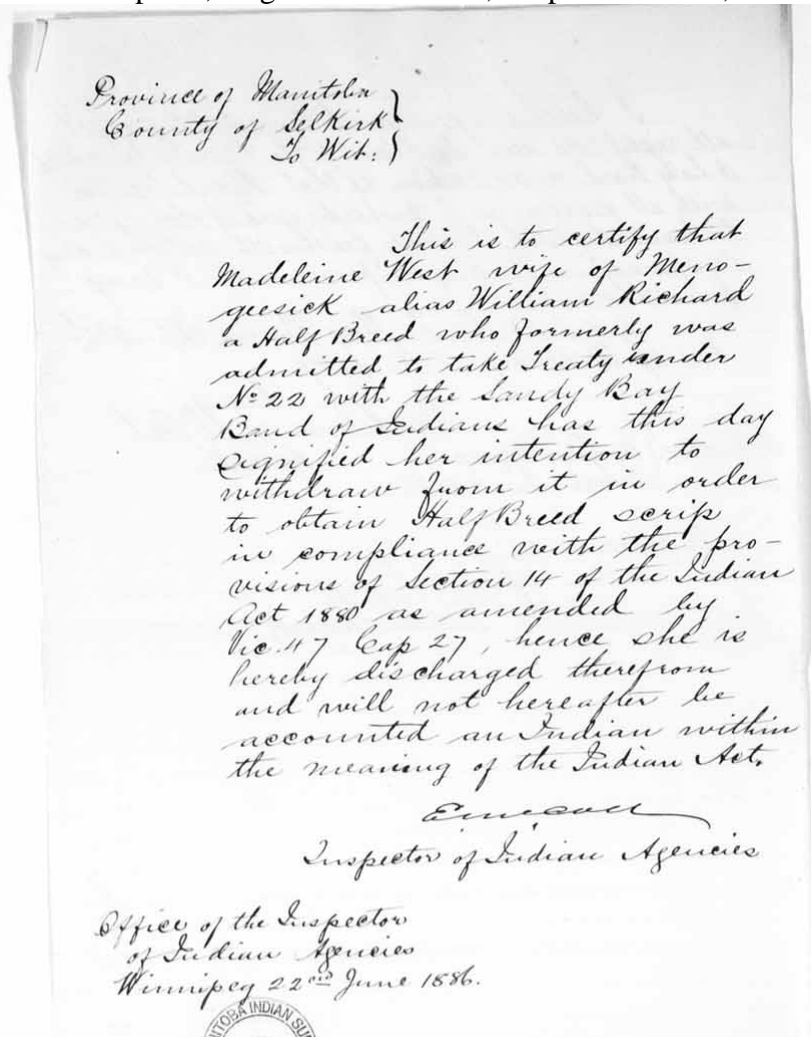 Province of Manitoba
County of Selkirk
To Wit:
This is to certify that
Madeleine West wife of Meno-
geesick alias William Richard
a Half Breed who formerly was
admitted to take Treaty under
No 22 with the Sandy Bay
Band of Indians has this day
signified her intention to
withdraw from it in order
to obtain Half Breed scrip
in compliance with the pro-
visions of Section 14 of the Indian
Act 1880 as amended by
Vic. 47 Cap 27, hence she is
hereby discharged therefrom
and will not hereafter be
accounted an Indian within
the meaning of the Indian Act.
Inspector of Indian Agencies
Office of the Inspector
of Indian Agencies
Winnipeg 22nd June 1886.
INDIAN